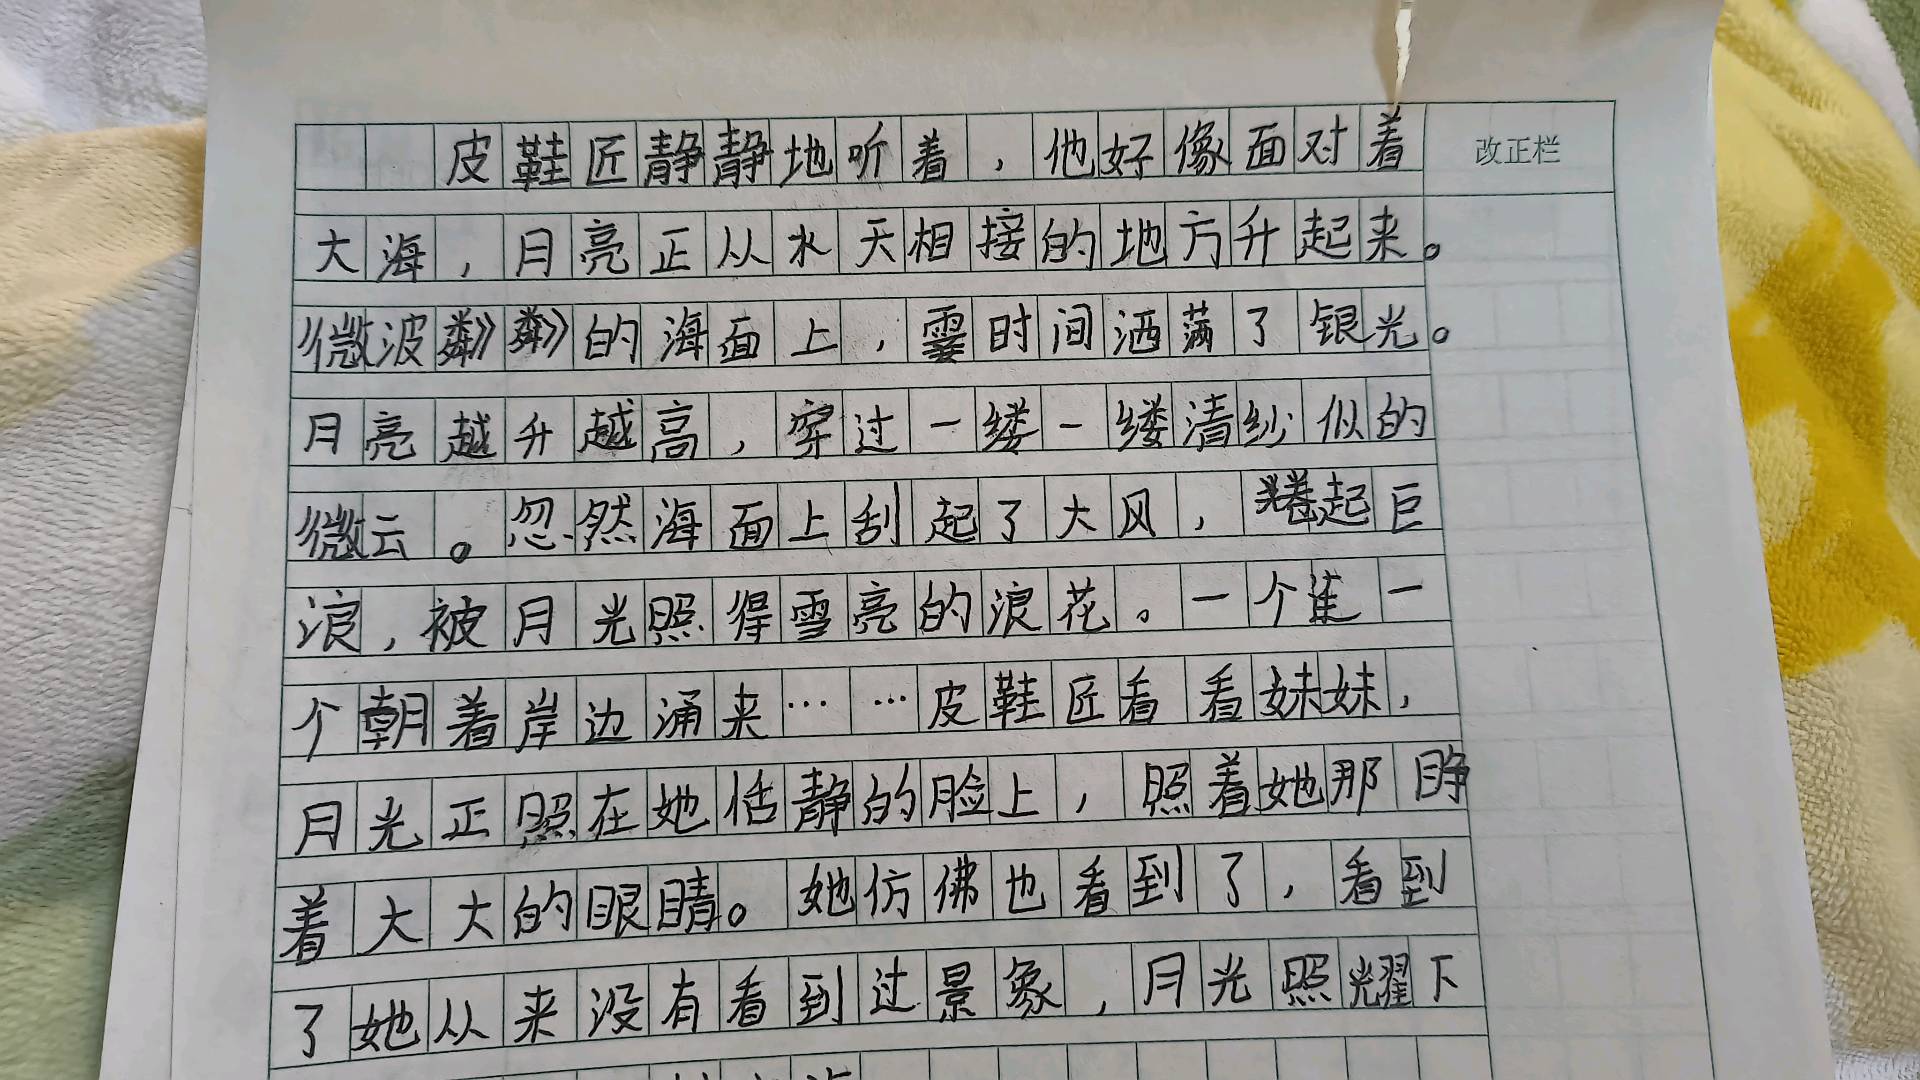 皮鞋匠静静地听着，他好像面对着
改正栏
大海，月亮正从水天相接的地方升起来。
微波粼粼的海面上，霎时间洒满了银光。
月亮越升越高，穿过一缕一缕清纱似的
微云。忽然海面上刮起了大风，卷起巨
浪，被月光照得雪亮的浪花。一个连一
个朝着岸边涌来……皮鞋匠看看妹妹，
月光正照在她恬静的脸上，照着她那睁
着大大的眼睛。她仿佛也看到了，看到
了她从来没有看到过景象，月光照耀下